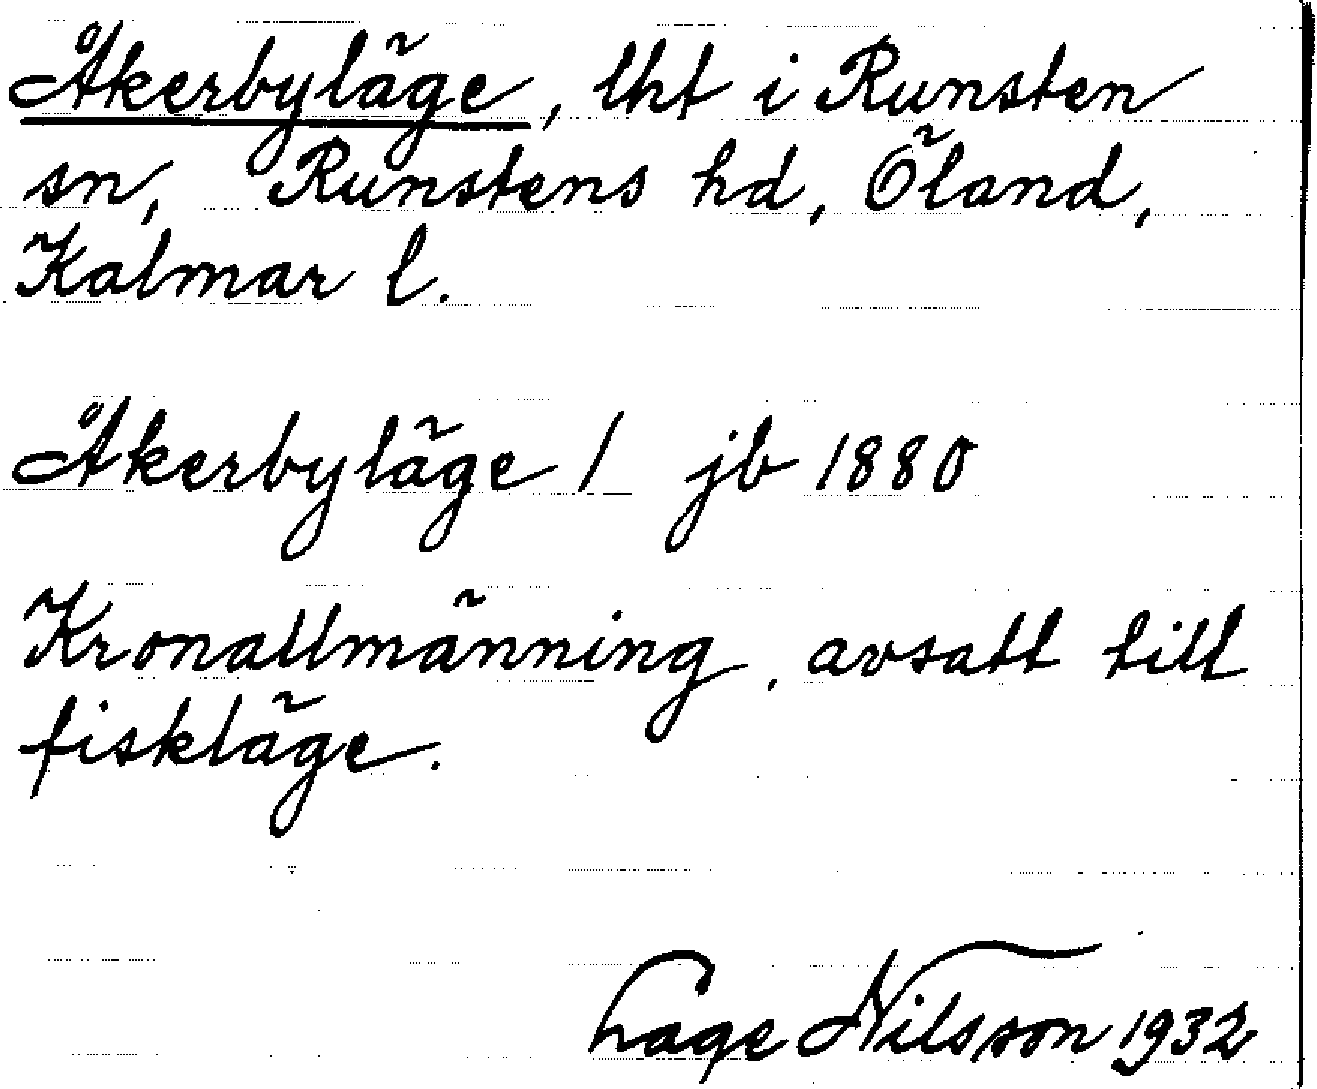 Åkerbyläge, lht i Runsten
sn, Runstens hd, Öland,
Kalmar l.
Åkerbyläge / jb 1880
Kronallmänning, avsatt till
fiskläge.
Lage Nilsson 1932